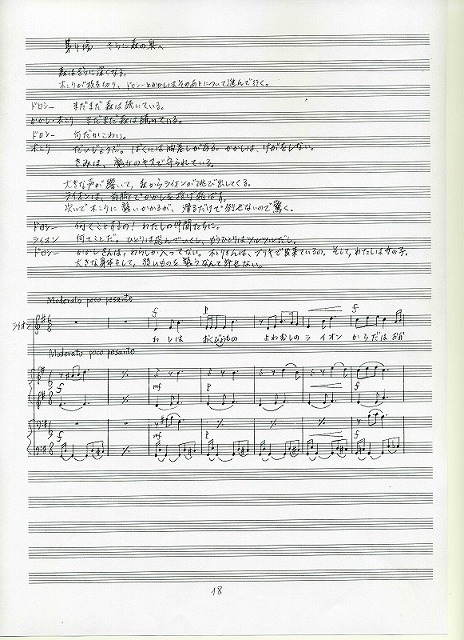 第4場　さらに森の奥へ
森はさらに深くなる。
木こりが枝を切り、ドロシーとかかしはそのあとについて進んで行く。
ドロシー　まだまだ森は続いている。
かかし・木こり　まだまだ森は続いている。
ドロシー　何だかこわい。
木こり　だいじょうぶ。ぼくには油差しがある。かかしは、けがをしない。
きみは、魔女のキスで守られている。
大きな声が響いて、森からライオンが飛び出してくる。
ライオンは、前脚でかかしを投げ飛ばす。
次いで木こりに襲いかかるが、滑るだけで倒せないので驚く。
ドロシー　何てことするの！わたしの仲間たちに。
ライオン　何てことだ。ひとりは飛んでっくし、もうひとりはツルツルだし。
ドロシー　かかしさんは、わらしか入ってない。木こりさんは、ブリキで出来ているの。そして、わたしは女の子。
大きな身体をして、弱いものを襲うなんて許せない。
Moderato poco pesante
ライオン
f p f
わしは おくびょうもの よわむしの ライオン からだは おお
Moderato poco pesante
f mf p f
f mf p f
18